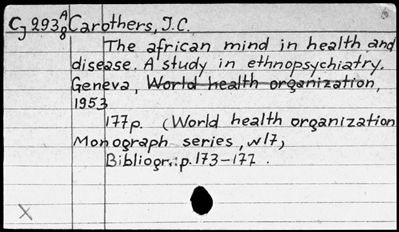 Cj 293 A8 Carothers, J.C.
The african mind in health and
disease. A study in ethnopsychiatry.
Geneva, World health organization,
1953
177p. (World health organization
Monograph series, n17)
Bibliogr.: p.173-177.
X